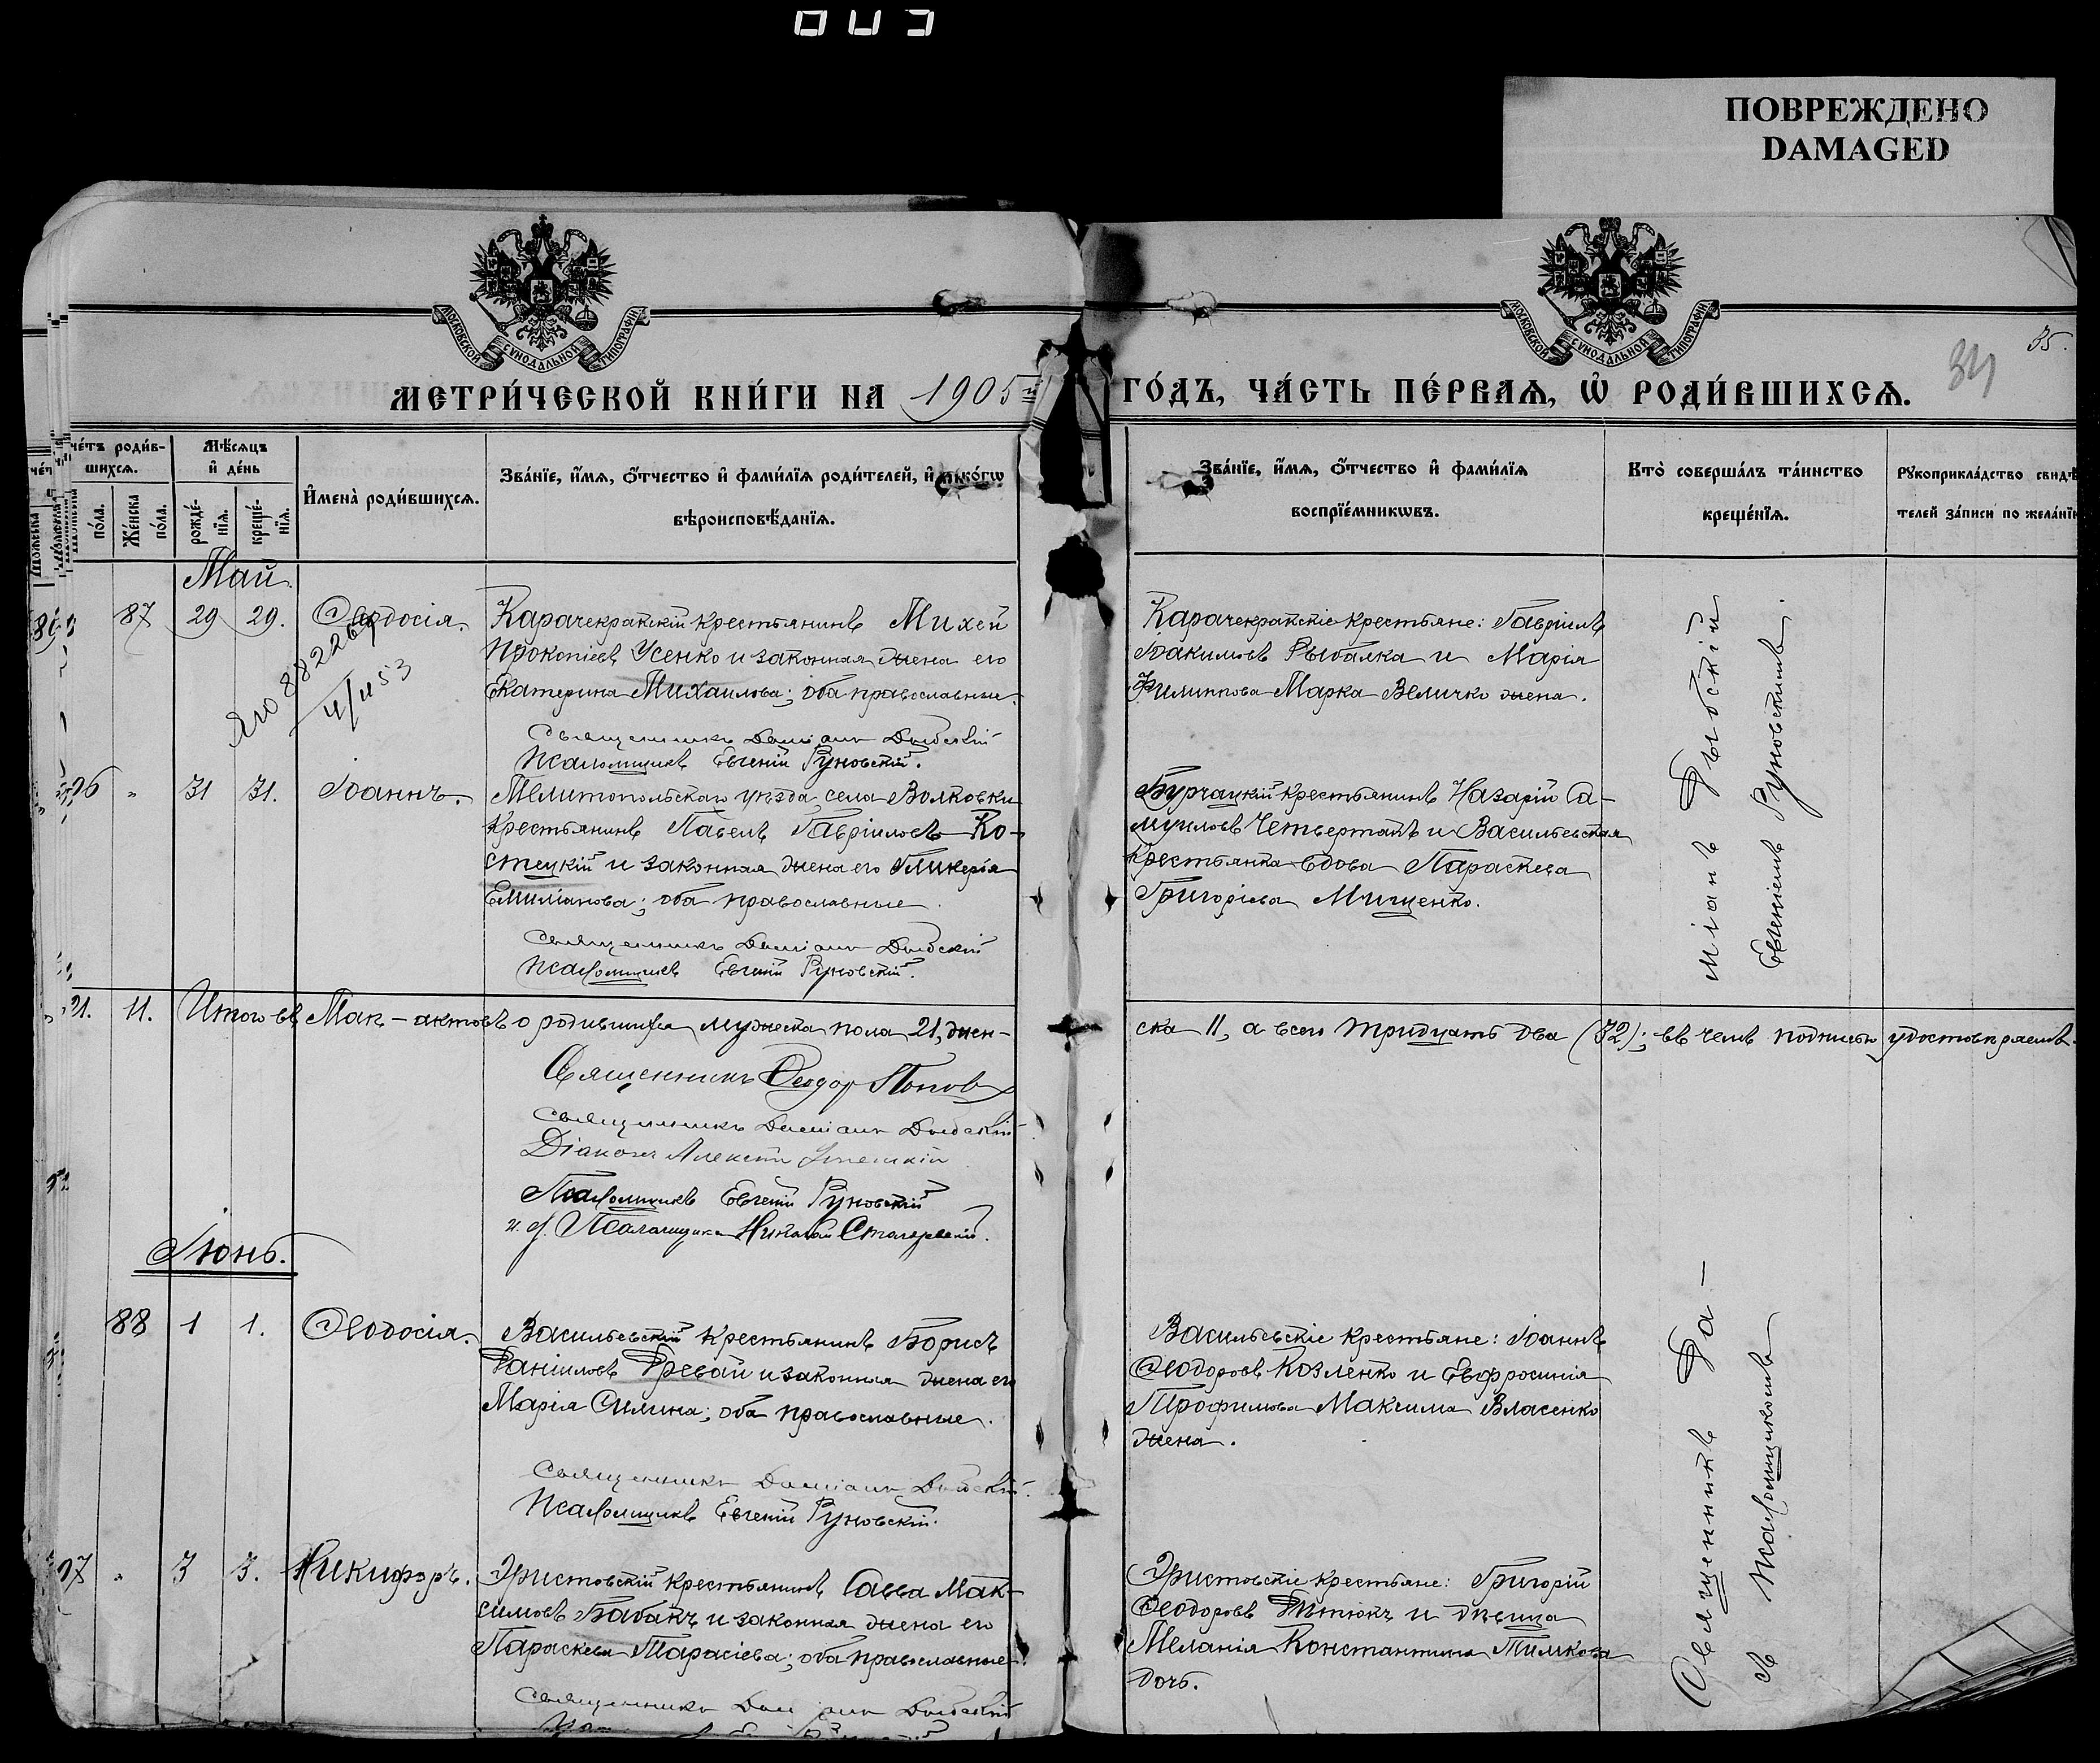 ПОВРЕЖДЕНО
DAMAGED
МОСКОВСКОЙ СѴНОДАЛЬНОЙ ТИПОГРАФІИ
МОСКОВСКОЙ СѴНОДАЛЬНОЙ ТИПОГРАФІИ
35.
34
МЕТРИ́ЧЕСКОЙ КНИ́ГИ НА 1905й
ГО́ДЪ, ЧА́СТЬ ПЕ́РВАѦ, Ѿ РОДИ́ВШИХСѦ.
че́тъ роди́в-
шихсѧ.
Мѣ́сѧцъ
и҆ де́нь
пола.
Же́нска
по́ла.
рожде́-
нїѧ.
креще́-
нїѧ.
И҆мена̀ роди́вшихсѧ.
Зва́нїе, и҆́мѧ, ѻ҆́тчество и҆ фами́лїѧ роди́телей, и҆ како́гѡ
вѣроисповѣ́данїѧ.
Зва́нїе, и҆́мѧ, ѻ҆́тчество и҆ фами́лїѧ
воспрїе́мникѡвъ.
Кто̀ соверша́лъ та́инство
креще́нїѧ.
Рꙋкоприкла́дство свидѣ
телей за́писи по жела́нїю
Май.
87 29 29. Ѳеодосія.
Карачекракскій крестьянинъ Михей
Прокопіевъ Усенко и законная жена его
Екатерина Михаилова; оба православные.
Священникъ Даміанъ Дыбскій
Псаломщикъ Евгеній Руновскій.
Карачекракскіе крестьяне: Гавріилъ
Іоакимовъ Рыбалка и Марія
Филиппова Марка Величко жена.
882264
4/II 53
96 " 31 31. Іоаннъ.
Мелитопольскаго уѣзда, села Волковки
крестьянинъ Павелъ Гавріиловъ Ко-
стецкій и законная жена его Гликерія
Емиліанова; оба православные.
Священникъ Даміанъ Дыбскій
Псаломщикъ Евгеній Руновскій.
Бурчацкій крестьянинъ Назарій Са-
муиловъ Четвертакъ и Васильевская
крестьянка вдова Параскева
Григоріева Мищенко.
міанъ Дыбскій
Евгеніемъ Руновскимъ.
21. 11. Итого въ Маѣ - актовъ о родившихся мужеска пола 21, жен-
ска 11, а всего тридцать два (32); въ чемъ подписью удостовѣряемъ.
Священникъ Ѳеодоръ Поповъ
Священникъ Даміанъ Дыбскій
Діаконъ Алексѣй
Псаломщикъ Евгеній Руновскій
и. д. Псаломщика Николай
Іюнь.
88 1 1. Ѳеодосія.
Васильевскій крестьянинъ Борисъ
Даніиловъ Древаль и законная жена его
Марія Силина; оба православные.
Священникъ Даміанъ Дыбскій.
Псаломщикъ Евгеній Руновскій.
Васильевскіе крестьяне: Іоаннъ
Ѳеодоровъ Козленко и Евфросинія
Трофимова Максима Власенко
жена.
97 " 3 3. Никифоръ.
Христовскій крестьянинъ Савва Мак-
симовъ Бабакъ и законная жена его
Параскева Тарасіева; оба православные.
Священникъ Даміанъ Дыбскій
Христовскіе крестьяне: Григорій
Ѳеодоровъ Дѣтюкъ и дѣвица
Меланія Константина Тимкова
дочь.
Священникъ Да-
съ псаломщикомъ